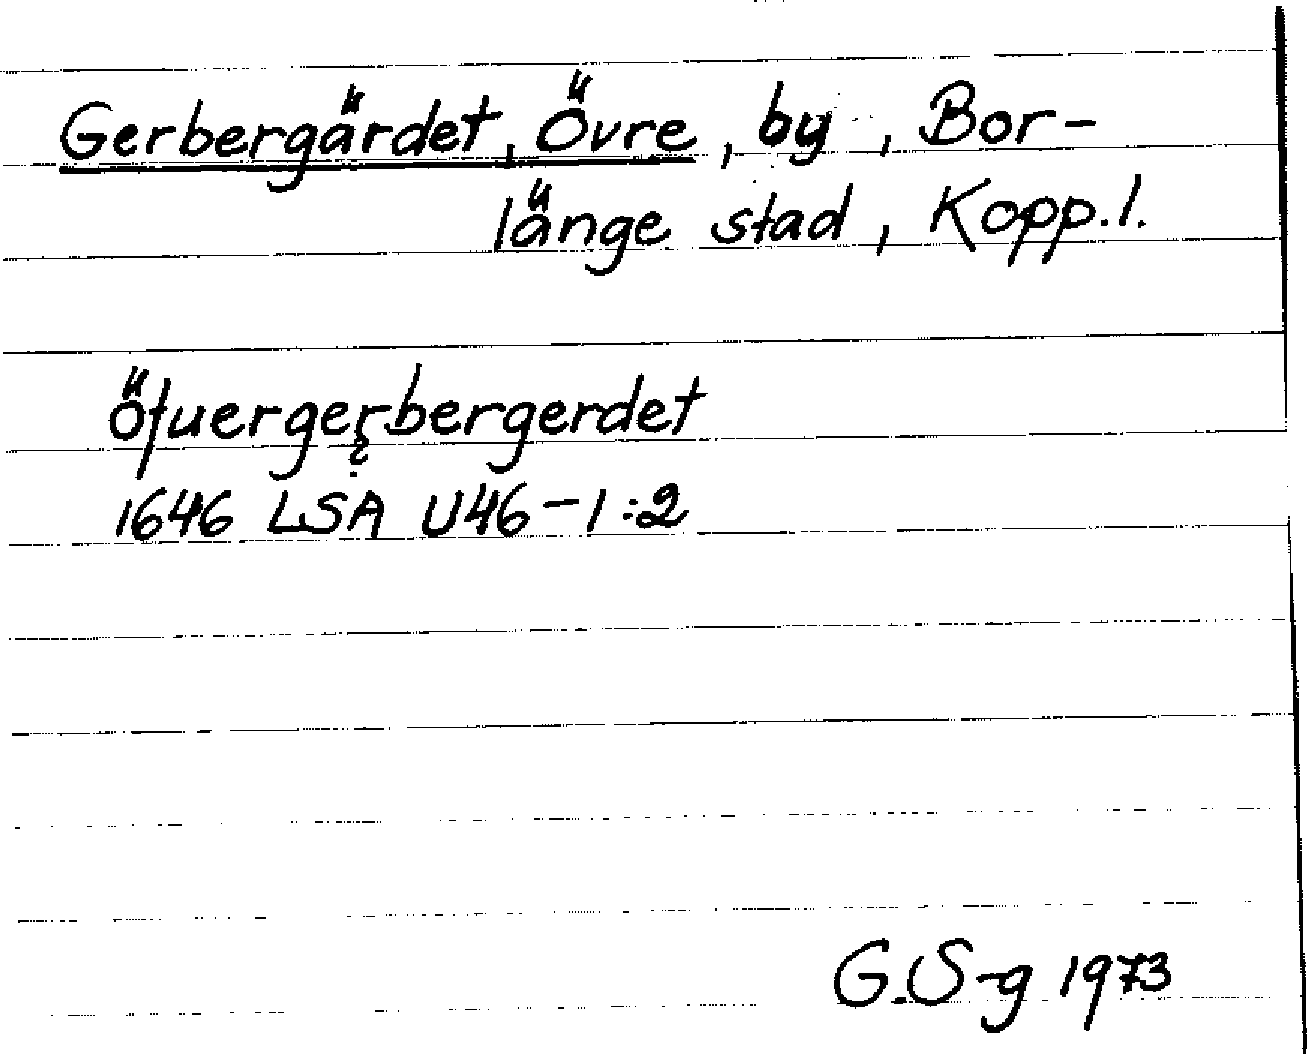 Gerbergärdet, Övre, by, Bor-
länge stad, Kopp.l.
öfuergerbergerdet
1646 LSA U46-1:2
G.S-g 1973